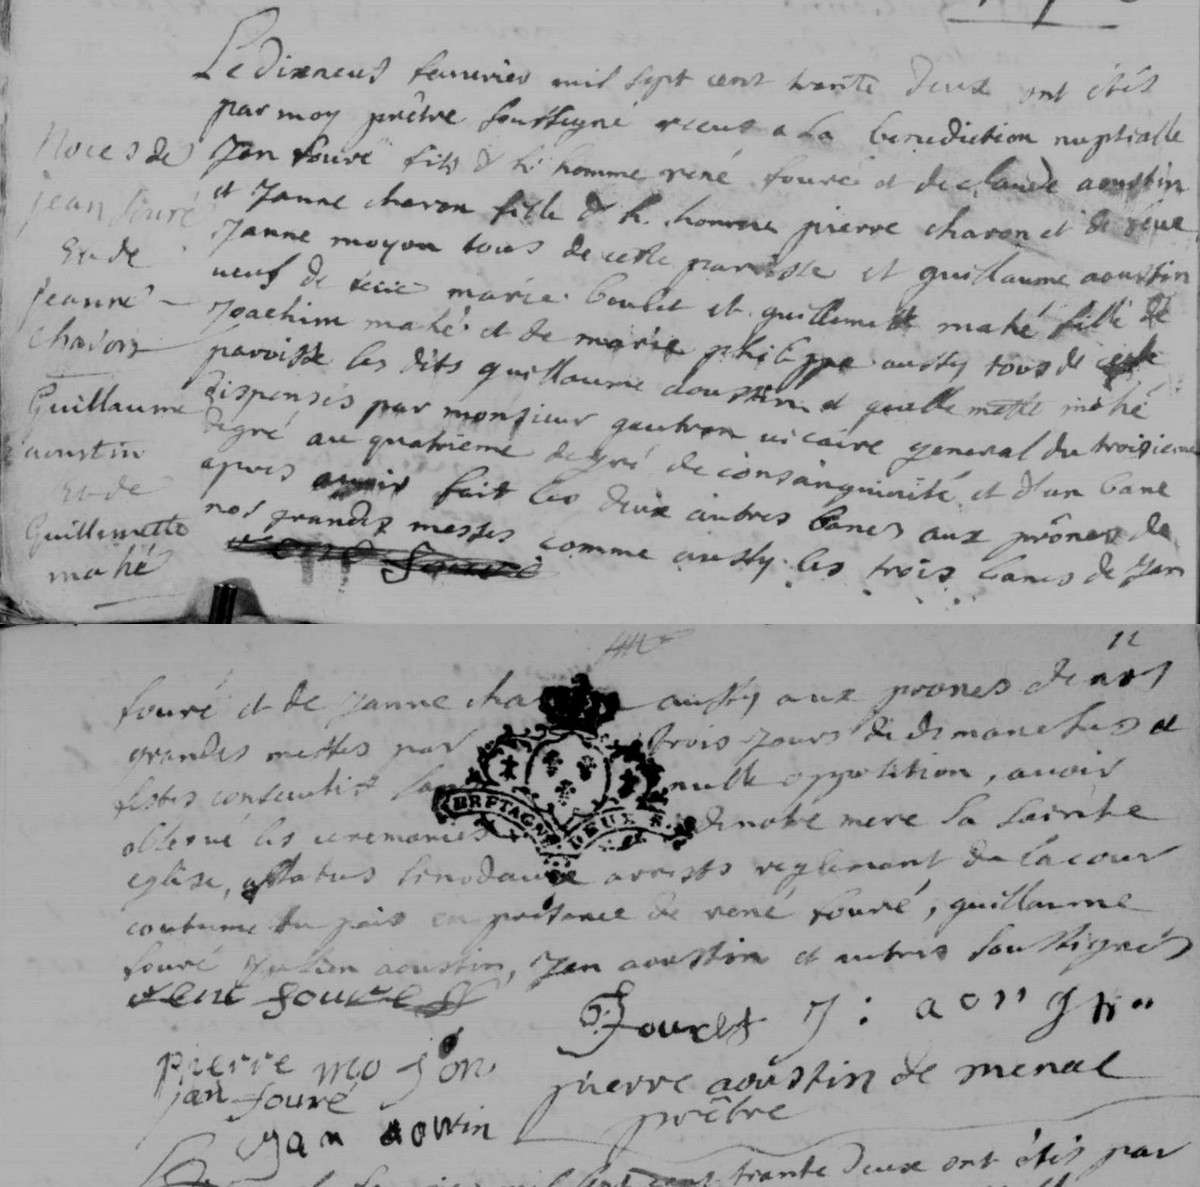 Le Dixneuf feuvrier mil sept cent trante deux ont étés
par moy prêtre soussigné receus a la benediction nuptialle
Jan fouré fils d h homme rené fouré et de claude aoustin
et Janne charon fille d h. homme pierre charon et de
Janne moyon tous de cette paroisse et guillaume aoustin
veuf de marie boulet et guillemette mahé fille de
Joachim mahé et de marie philippe aussy tous de cette
paroisse les dits guillaume aoustin et guillemette mahé
dispensés par monsieur gautron vicaire general du troisieme
degré au quatrieme degré de consanguinité et d'un banc
apres avoir fait les deux autres bancs aux prônes de
nos grandes messes comme aussy les trois bancs de Jan
rené fouré
Noces de
jean fouré
et de
jeanne
charon
Guillaume
aoustin
et de
Guillemette
mahé
12
fouré et de Janne cha aussy aux prones de nos
grandes messes par trois jours de dimanches et
festes consecutifs nulle opposition, avoir
observé les ceremonies de notre mere la sainte
eglise, statuts sinodaux arrests reglement de la cour
coutume du pais en présence de rené fouré, guillaume
fouré Julien aoustin, Jan aoustin et autres soussignés
BRETAGNE DEUX S.
rené fouré
J : aoustin
pierre moyon
pierre aoustin de menac
jan fouré
prêtre
Jan aoustin
mil sept cent trante deux ont étés par